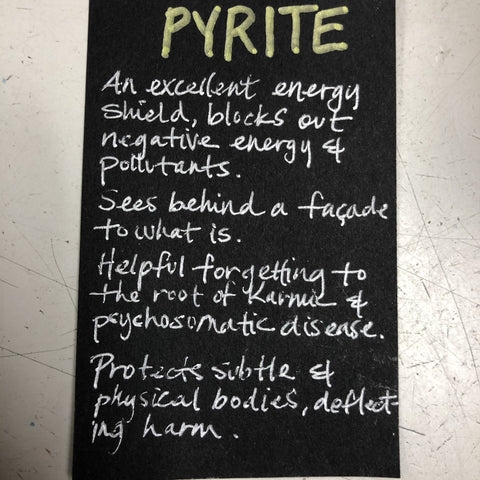 PYRITE
An excellent energy
shield, blocks out
negative energy &
pollutants.
Sees behind a façade
to what is.
Helpful for getting to
the root of Karmic &
psychosomatic disease.
Protects subtle &
physical bodies, deflect-
ing harm.